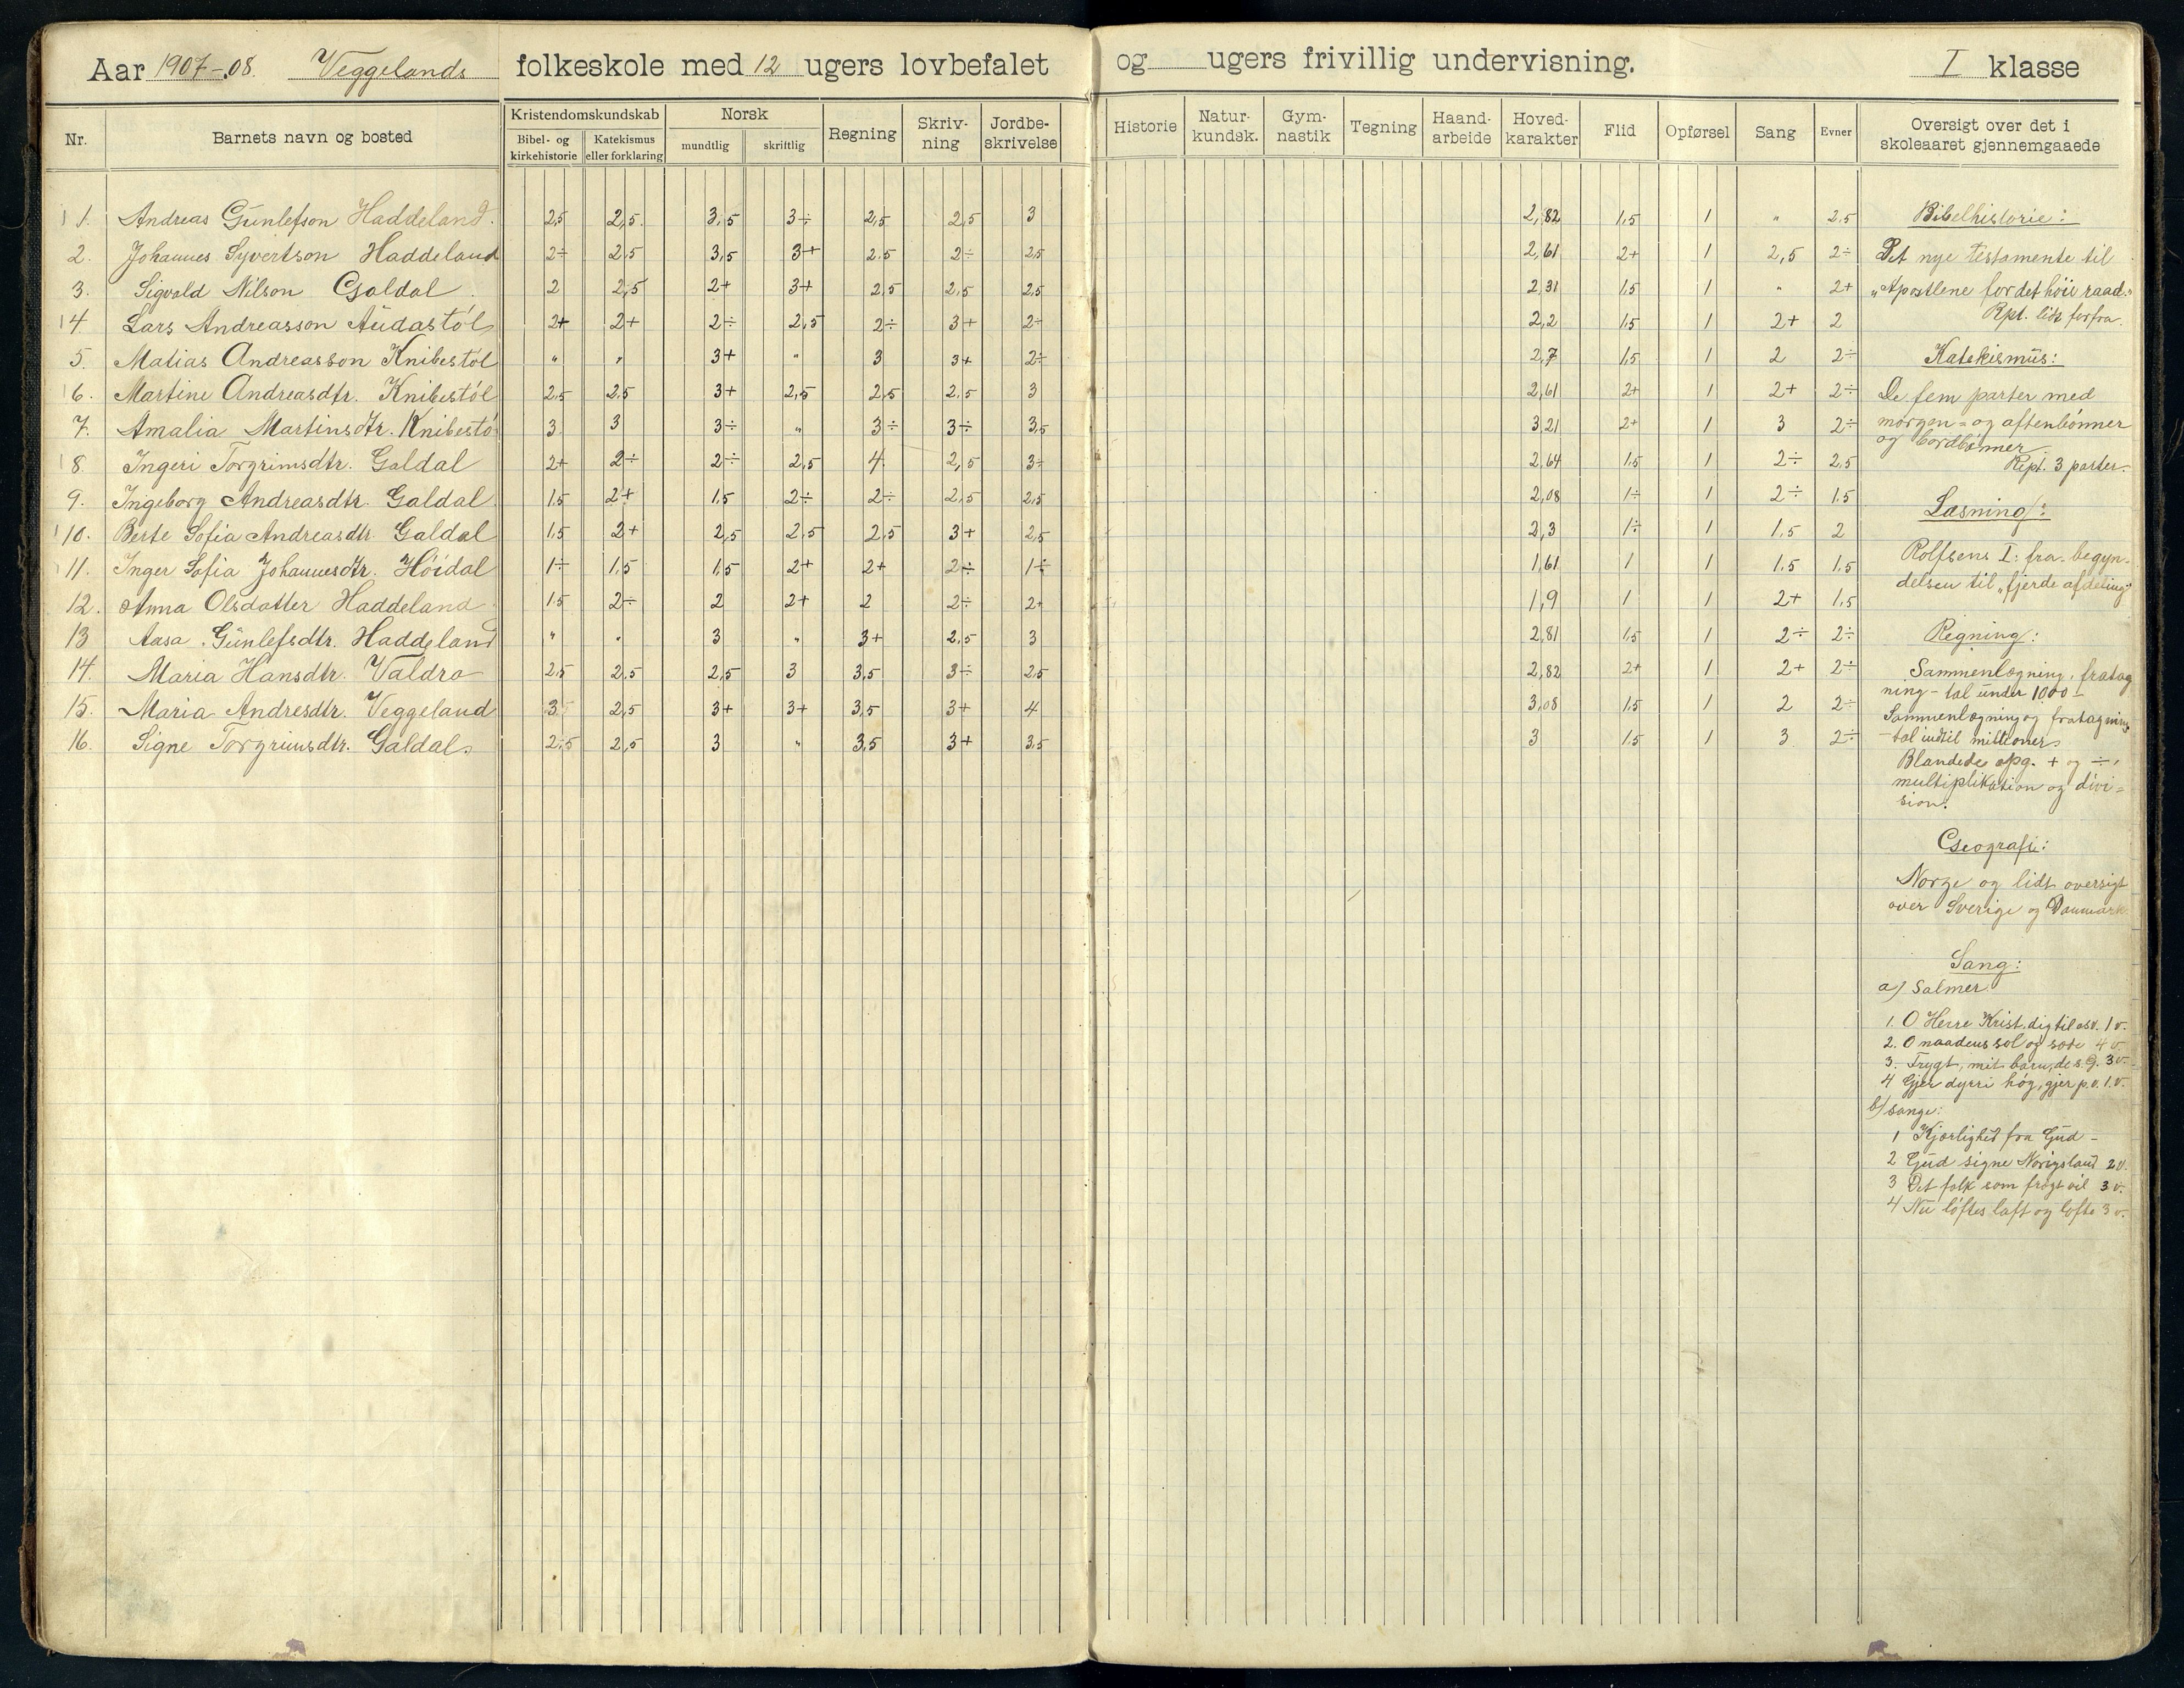 Aar 1907-08. Veggelands folkeskole med 12 ugers lovbefalet og ugers frivillig undervisning. I klasse
Nr. Barnets navn og bosted Kristendomskundskab Bibel- og kirkehistorie Katekismus eller forklaring Norsk mundtlig skriftlig Regning Skriv-ning Jordbe-skrivelse Historie Natur-kundsk. Gym-nastik Tegning Haand-arbeide Hoved-karakter Flid Opførsel Sang Evner Oversigt over det i skoleaaret gjennemgaaede
1. Andreas Gunlefson Haddeland. 2,5 2,5 3,5 3÷ 2,5 2,5 3 2,82 1,5 1 " 2,5
2. Johannes Syvertson Haddeland 2÷ 2,5 3,5 3+ 2,5 2÷ 2,5 2,61 2+ 1 2,5 2÷
3. Sigvald Nilson Galdal 2 2,5 2+ 3+ 2,5 2,5 2,5 2,31 1,5 1 " 2+
4. Lars Andreasson Audastøl 2+ 2+ 2÷ 2,5 2÷ 3+ 2÷ 2,2 1,5 1 2+ 2
5. Matias Andreasson Knibestøl " " 3+ " 3 3+ 2÷ 2,7 1,5 1 2 2÷
6. Martine Andreasdtr. Knibestøl 2,5 2,5 3+ 2,5 2,5 2,5 3 2,61 2+ 1 2+ 2÷
7. Amalia Martinsdtr. Knibestø 3 3 3÷ " 3÷ 3÷ 3,5 3,21 2+ 1 3 2÷
8. Ingeri Torgrimsdtr. Galdal 2+ 2÷ 2÷ 2,5 4 2,5 3÷ 2,64 1,5 1 2÷ 2,5
9. Ingeborg Andreasdtr. Galdal 1,5 2+ 1,5 2÷ 2÷ 2,5 2,5 2,08 1÷ 1 2÷ 1,5
10. Berte Sofia Andreasdtr. Galdal 1,5 2+ 2,5 2,5 2,5 3+ 2,5 2,3 1÷ 1 1,5 2
11. Inger Sofia Johannesdtr. Høidal 1÷ 1,5 1,5 2+ 2+ 2÷ 1÷ 1,61 1 1 1,5 1,5
12. Anna Olsdatter Haddeland 1,5 2÷ 2 2+ 2 2÷ 2+ 1,9 1 1 2+ 1,5
13 Aasa Gunlefsdtr. Haddeland " " 3 " 3+ 2,5 3 2,81 1,5 1 2÷ 2÷
14. Maria Hansdtr. Valdra 2,5 2,5 2,5 3 3,5 3÷ 2,5 2,82 2+ 1 2+ 2÷
15. Maria Andresdtr. Veggeland 3 2,5 3+ 3+ 3,5 3+ 4 3,08 1,5 1 2 2÷
16. Signe Torgrimsdtr. Galdal. 2,5 2,5 3 " 3,5 3+ 3,5 3 1,5 1 3 2÷
Bibelhistorie:
Det nye testamente til
"Apostlene for det høie raad."
Rpt. lidt forfra.
Katekismus:
De fem parter med
morgen- og aftenbønner
og bordbønner.
Rept. 3 parter.
Læsning:
Rolfsens I: fra begyn-
delsen til "fjerde afdeling"
Regning:
Sammenlægning, fratag
ning - tal under 1000 -
Sammenlægning og fratagning
- tal indtil millioner.
Blandede opg. + og ÷,
multiplikation og divi-
sion.
Geografi:
Norge og lidt oversigt
over Sverige og Danmark
Sang:
a) Salmer
1. O Herre Krist, dig til 1 v.
2. O naadens sol og sæde 4 v.
3. Trygt, mit barn, de s. G. 3 v.
4 Gjer dyrri høg, gjer p. v. 1. v.
b) sange:
1 Kjærlighed fra Gud -
2 Gud signe Norigsland 2 v.
3 Det folk som frægt vil 3 v.
4 Nu løftes laft og lofte 3 v.